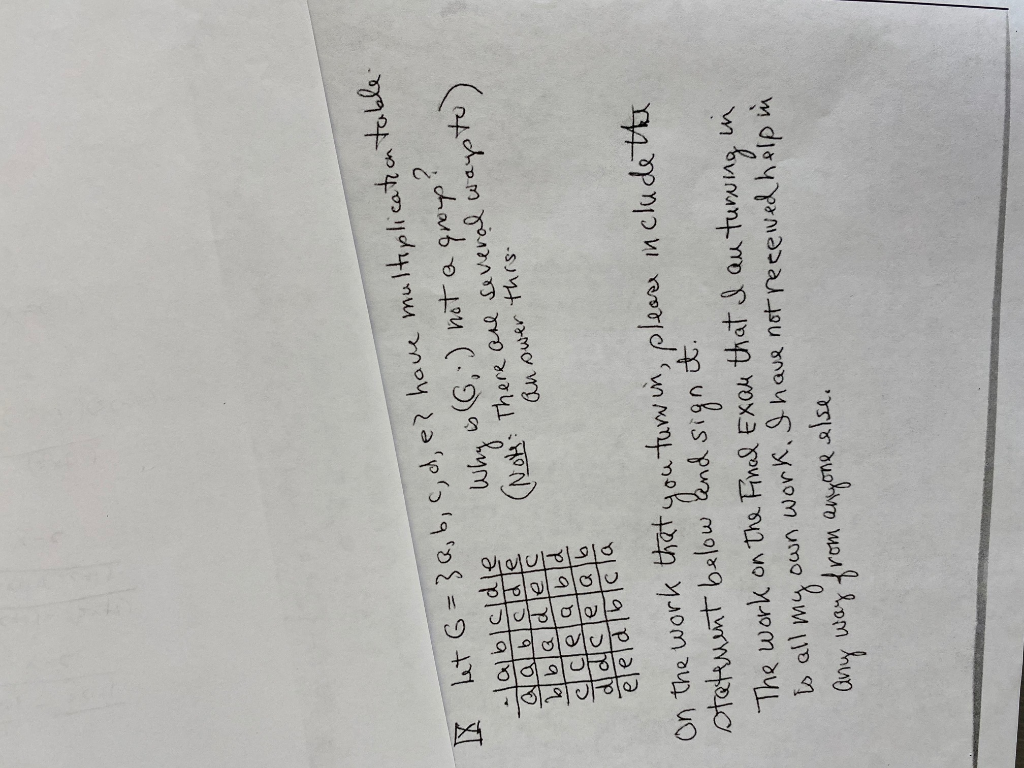 IX Let G = {a, b, c, d, e} have multiplication table.
Why is (G, ·) not a group?
(Note: There are several ways to)
answer this.
· a b c d e
a a b c d e
b b a d e c
c c e a b d
d d c e a b
e e d b c a
On the work that you turn in, please include the
statement below and sign it.
The work on the Final Exam that I am turning in
is all my own work. I have not received help in
any way from anyone else.